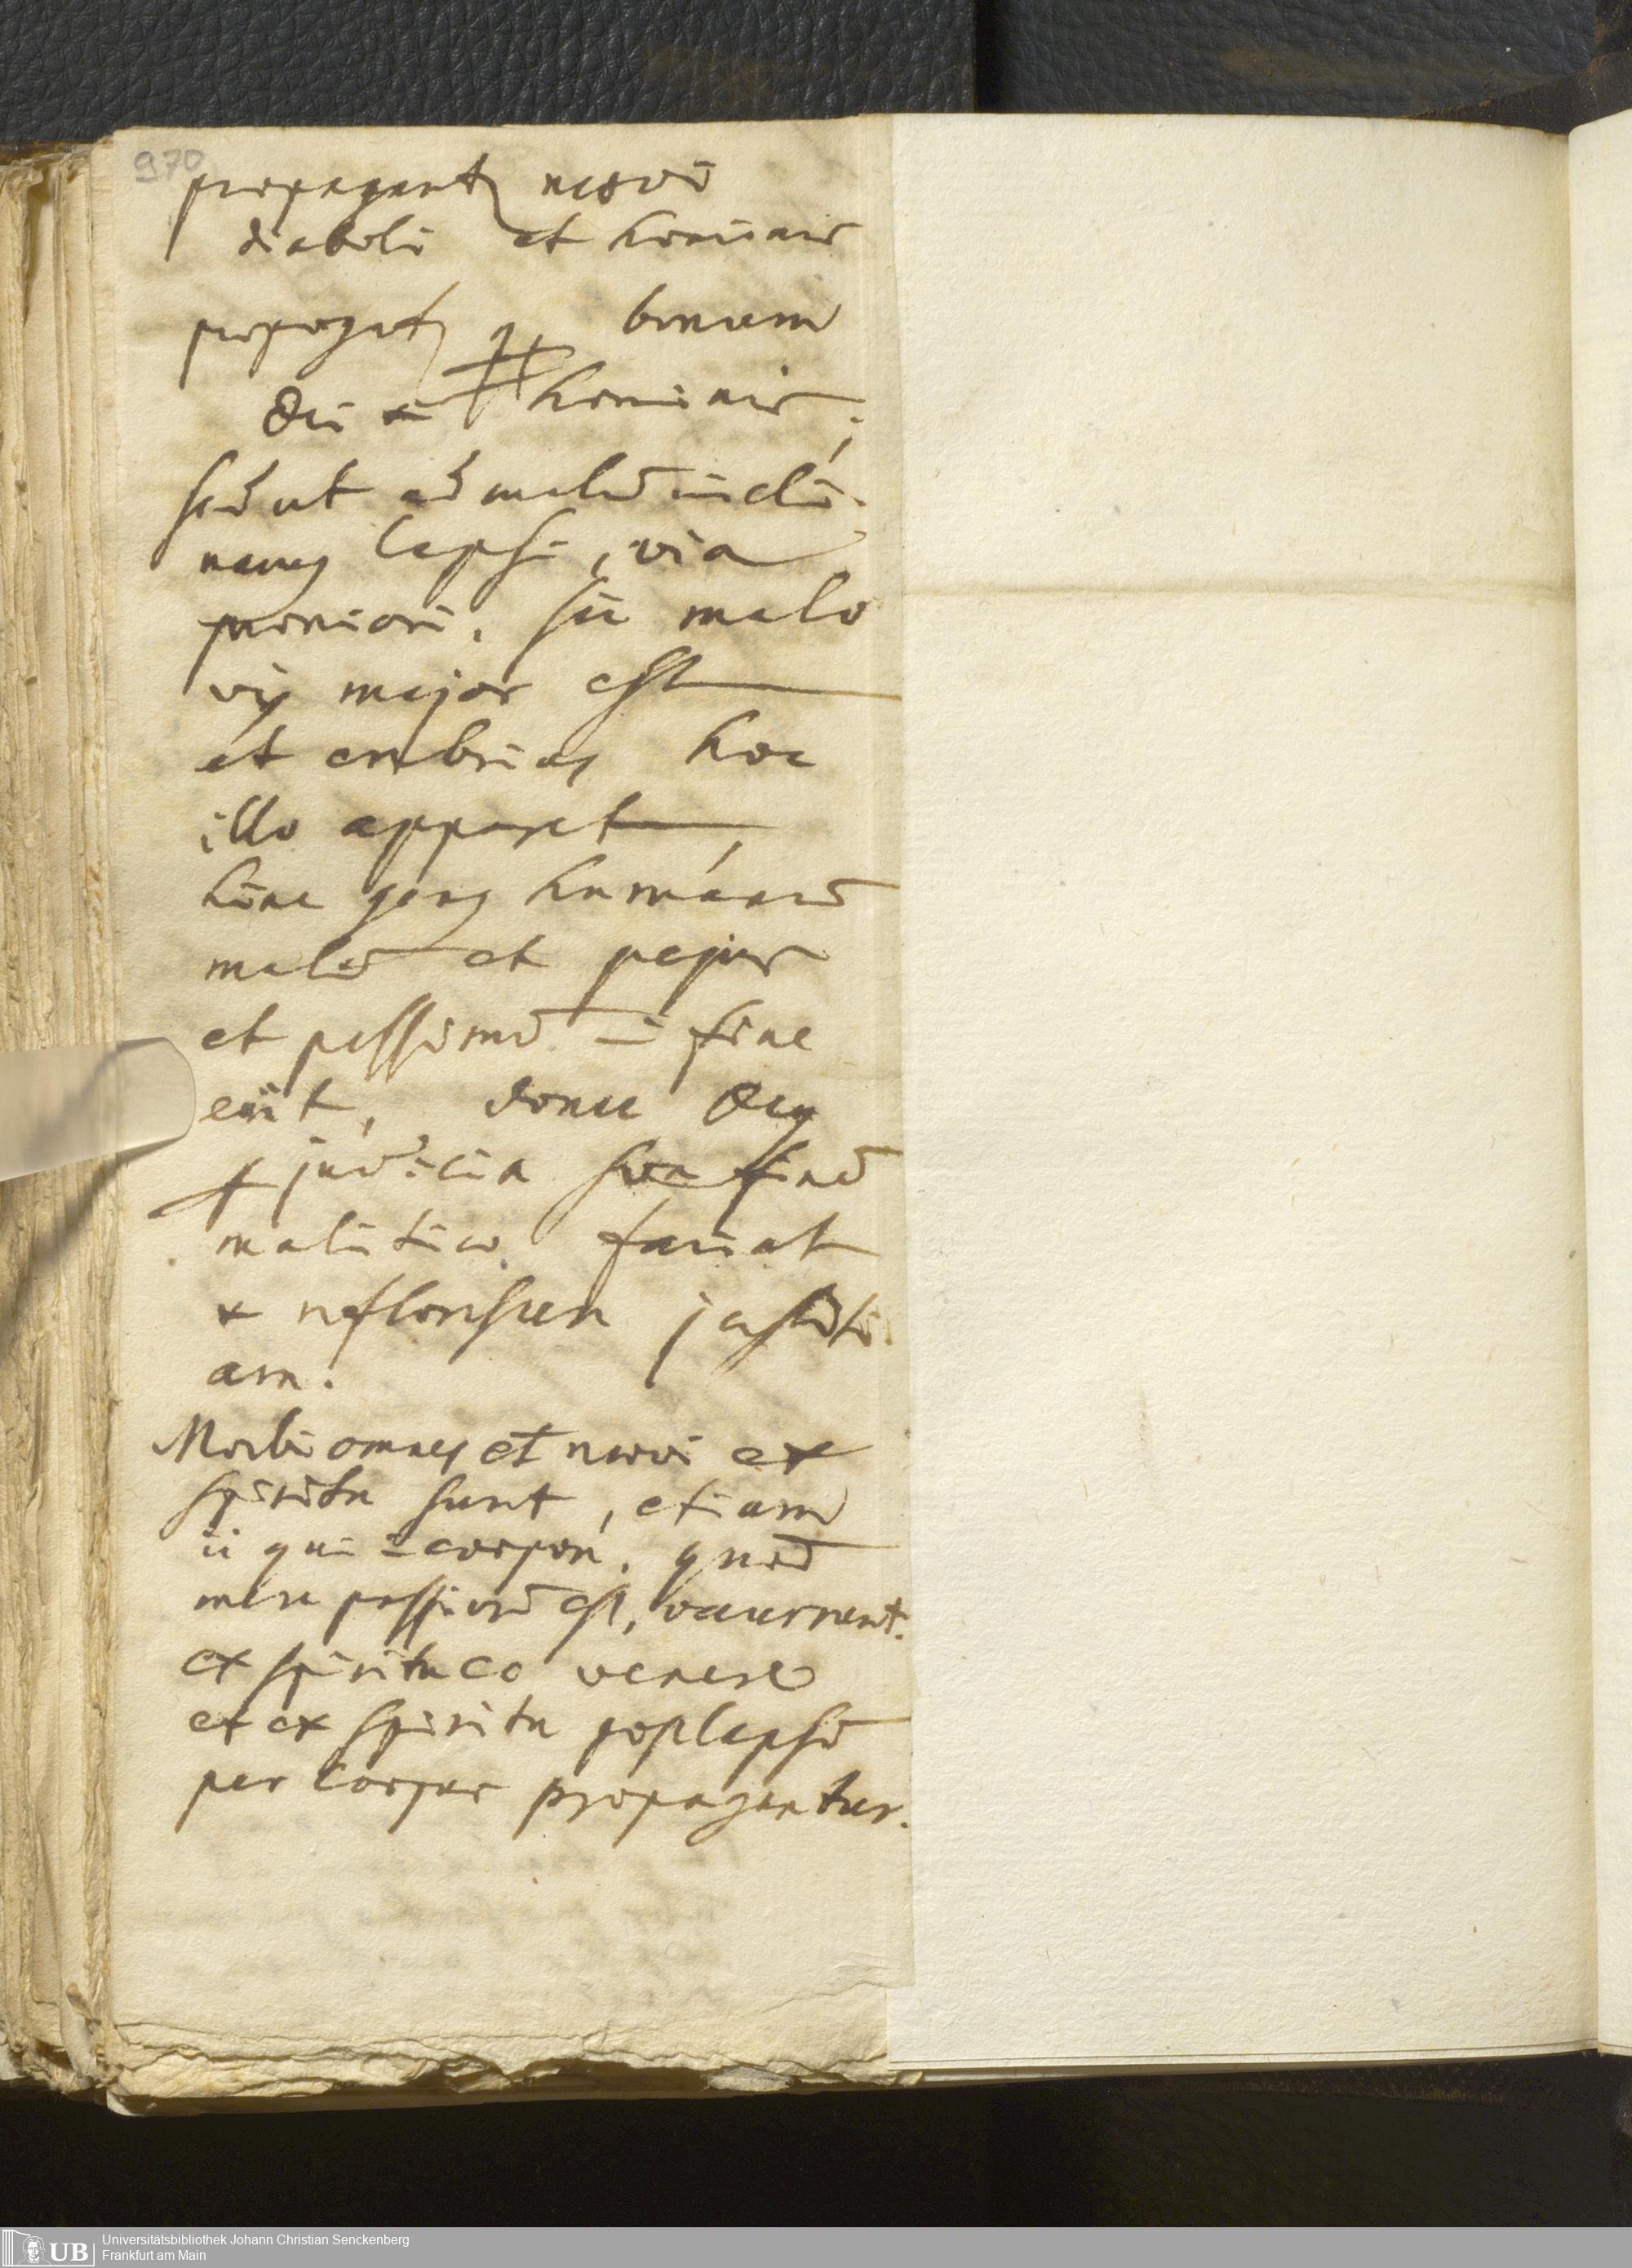 970
propagant nævi
diaboli et hominis
propagat bonum
Dei & hominis;
sed ut ad malū incli-
namus lapsi, via
proniori. sic malo
vis major est
et crebrius hoc
illo apparet,
hinc genus humanū
malū et pejus
et pessimū fine
erit, donec Deus
judicia sua finē
malitiæ faciat
& reflorescen justiti-
am.
Morbi omnes et nævi ex
spiritu sunt, etiam
ii qui corpori, quod
mere passivū est, occurrunt.
ex spiritu eo venere
et ex spiritu post lapsū
per corpus propagantur.
UB
Universitätsbibliothek Johann Christian Senckenberg
Frankfurt am Main